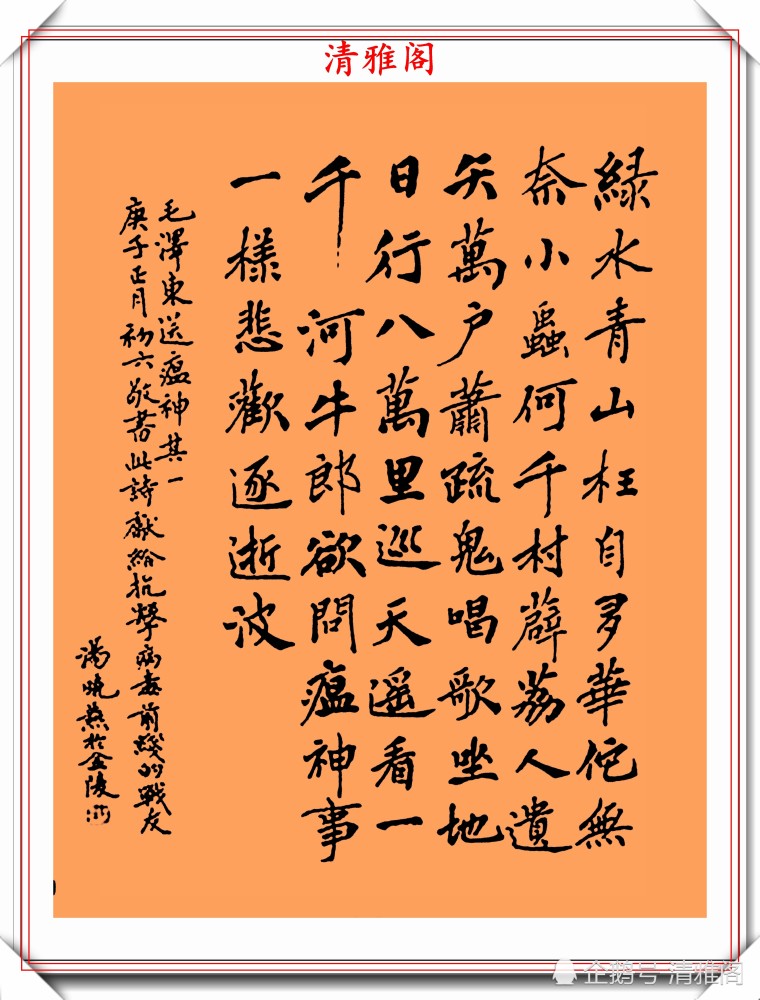 清雅阁
緑水青山枉自多華佗無
奈小蟲何千村薜荔人遺
矢萬户蕭疏鬼唱歌坐地
日行八萬里巡天遥看一
千河牛郎欲問瘟神事
一樣悲歡逐逝波
毛澤東送瘟神其一
庚子正月初六敬書此詩獻給抗擊病毒前綫的戰友
湯曉燕於金陵
企鹅号 清雅阁